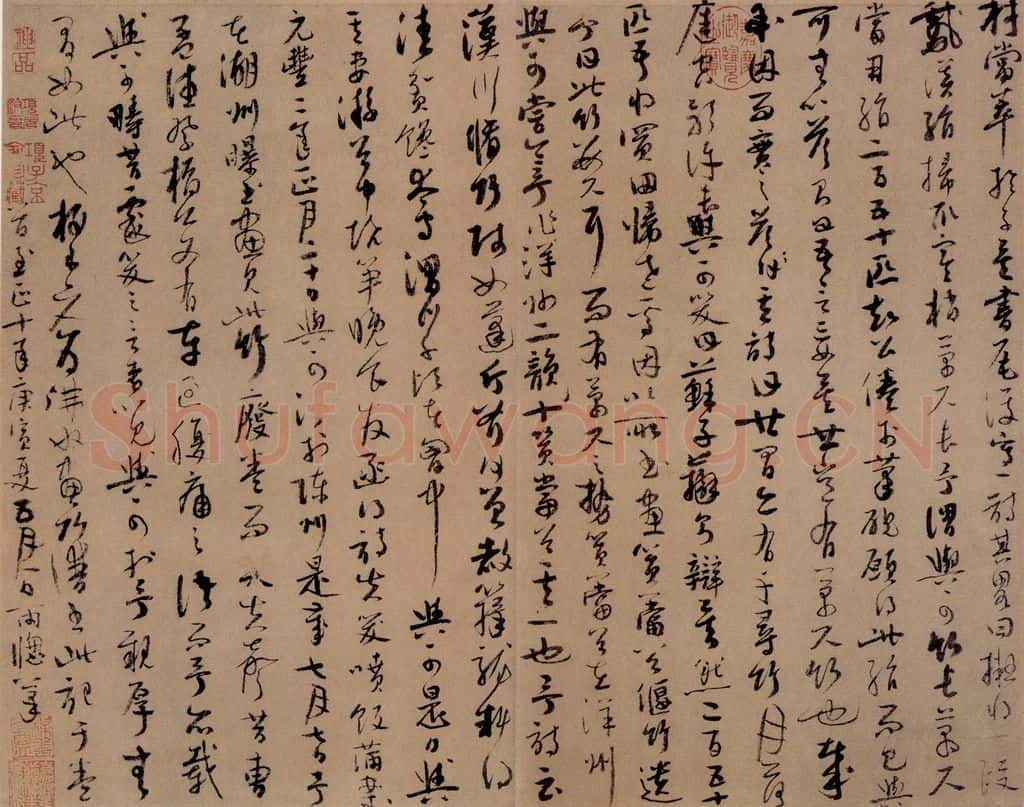 材當萃於子矣書尾復寫一詩其畧曰擬將一段
鵝溪絹掃取寒梢萬尺長予謂與可竹長萬尺
當用絹二百五十匹知公倦於筆硯願得此絹而已與
可無以答則曰吾言妄矣世豈有萬尺竹也哉
余因而實之答其詩曰世間亦有千尋竹月落
庭空影許長與可笑曰蘇子辯則辯矣然二百五十
匹吾將買田歸老焉因以所畫篔簹谷偃竹遺
予曰此竹數尺耳而有萬尺之勢篔簹谷在洋州
與可嘗令予作洋州三十詠篔簹谷其一也予詩云
漢川脩竹賤如蓬斤斧何曾赦籜龍料得
清貧饞太守渭川千畝在胸中 與可是日與
其妻游谷中燒筍晚食發函得詩失笑噴飯滿案
元豐二年正月二十日與可沒於陳州是歲七月七日予
在湖州曝書畫見此竹廢卷而哭失聲昔曹
孟德祭橋公文有車過腹痛之語而予亦載
與可疇昔戲笑之言者以見與可於予親厚無
間如此也 梅道人爲畫竹譜至此記于卷
首至正十年庚寅夏五月一日雨牕筆
Shufawang.CN